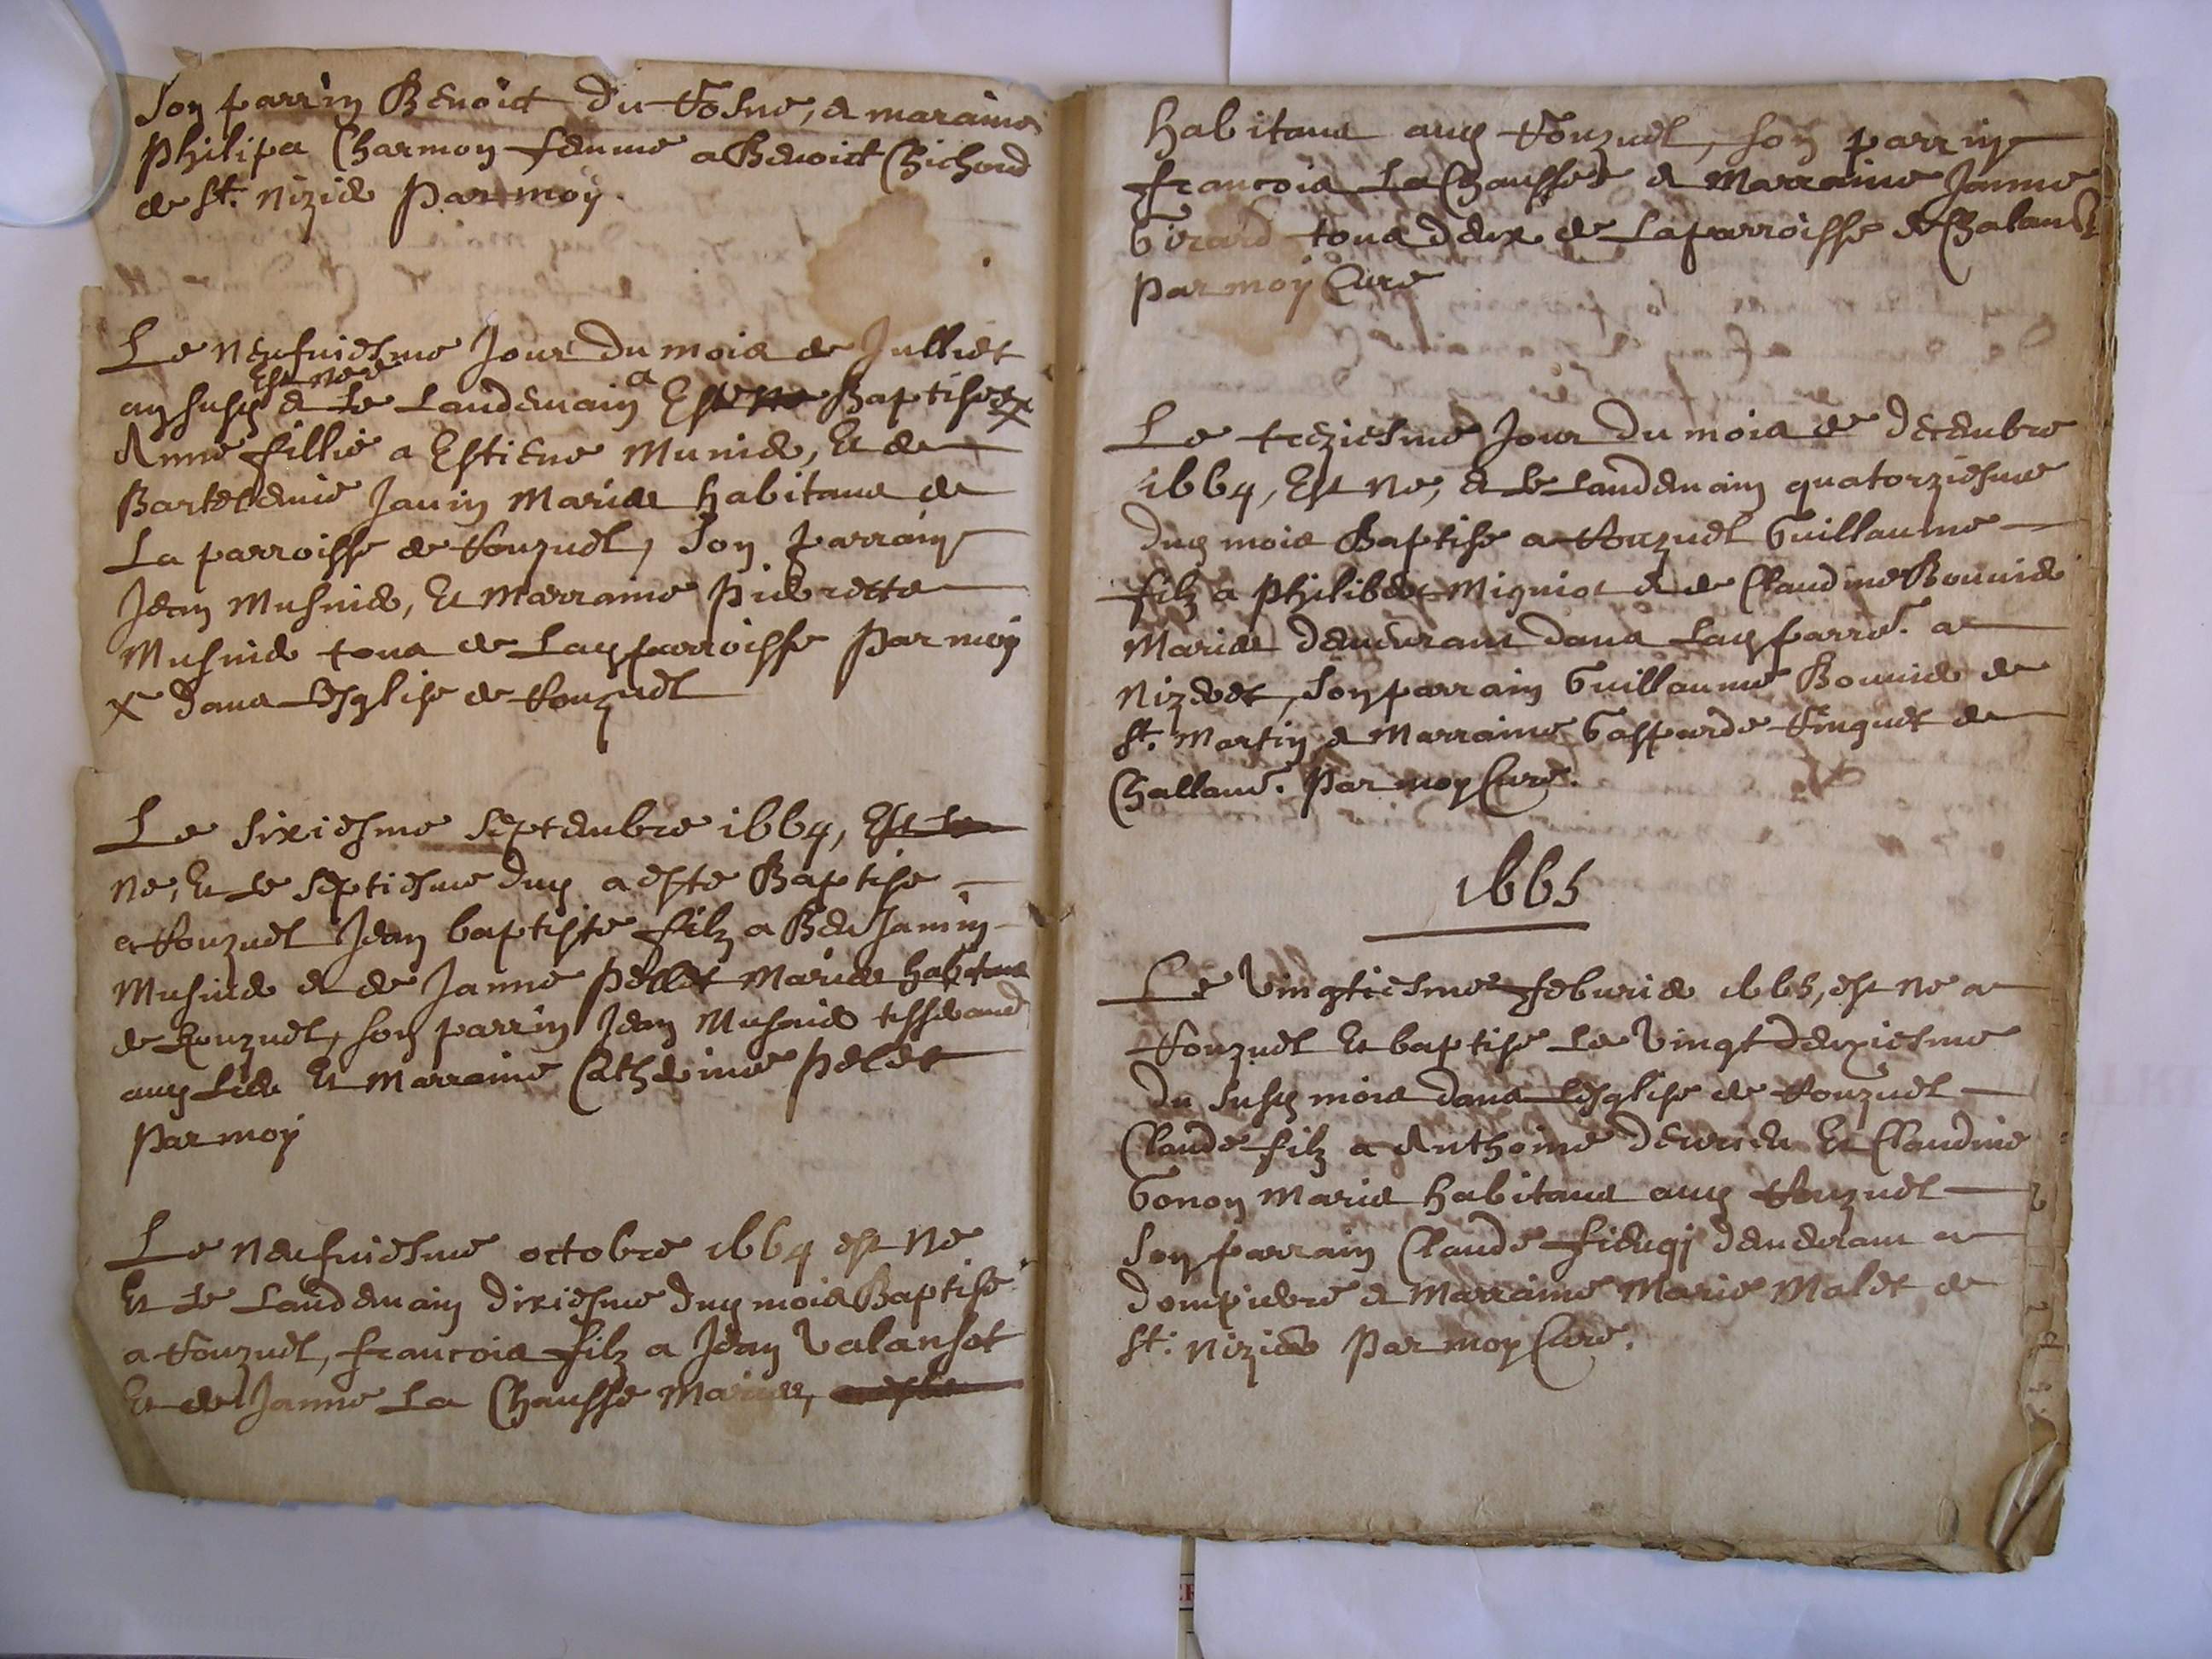 Son parrin Benoict du Fosne, & maraine
Philipa Charmon femme a Benoict Chichord
de St. Nizie Par moy.
Le neufuiesme Jour du mois de Julliet
an susd est nee & Le Landemain a Este Baptisee x
Anne fillie a Estiene Munie, Et de
Bartelemie Janin Maries habitans de
La parroisse de Touzuel, Son parrain
Jean Musnie, Et Marraine Pierrette
Musnie tous de Lad parroisse Par moy
x dans Lesglise de Touzuel
Le sixiesme septembre 1664, Est
ne, Et Le septiesme dud a este Baptise
a Touzuel Jean baptiste filz a BenJamin
Musnie & de Janne Pellet Maries habitans
de Touzuel, son parrin Jean Musnie tisserand
aud Lieu Et Marraine Catherine Pelet
Par moy
Le neufuiesme octobre 1664 est ne
Et Le Landemain dixiesme dud mois Baptise
a Touzuel, francois filz a Jean Valansot
Et de Janne La Chausse Maries,
habitans aud Touzuel, son parrin
francois La Chaussee & Marraine Janne
Girard tous deux de La parroisse de
Par moy Cure
Le treziesme Jour du mois de decembre
1664, Est ne, & Le Landemain quatorziesme
dud mois Baptise a Touzuel Guillaume
filz a Philibert Migniot & de Claudine Bouuie
Maries demeurans dans Lad parro. a
Nizeret, Son parrain Guillaume Bouuie de
St. Martin & Marraine Gasparde Tinguet de
Challam. Par moy Cure.
1665
Le Vingtiesme feburie 1665, est ne a
Touzuel Et baptise Le Vingt deuxiesme
du susd mois dans Lesglise de Touzuel
Claude filz a Anthoine Et Claudine
Gonon Maries habitans aud Touzuel
Son parrain Claude demeurant a
dompierre & Marraine Marie Malet de
St. Nizie Par moy Cure.